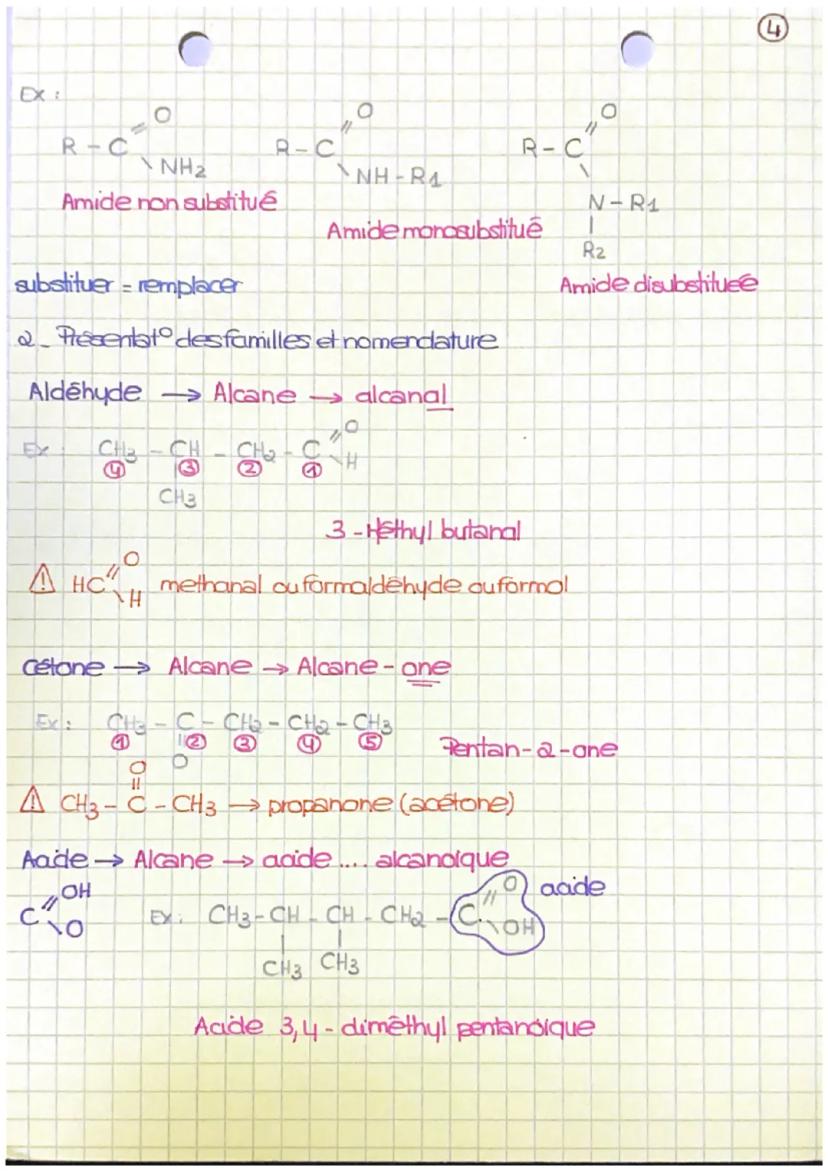 4
Ex :
R - C // O \ NH2
R - C // O \ NH - R1
R - C // O \ N - R1 | R2
Amide non substitué
Amide monosubstitué
Amide disubstituée
substituer = remplacer
2 - Présentat° des familles et nomenclature
Aldéhyde → Alcane → alcanal
Ex : CH3 - CH - CH2 - C // O \ H
4 3 2 1
CH3
3 - Méthyl butanal
⚠ HC // O \ H methanal ou formaldéhyde ou formol
Cétone → Alcane → Alcane - one
Ex : CH3 - C - CH2 - CH2 - CH3
1 2 3 4 5
O
Pentan - 2 - one
O
⚠ CH3 - C - CH3 → propanone (acétone)
Acide → Alcane → acide .... alcanoïque
C // OH \ O
Ex : CH3 - CH - CH - CH2 - C // O \ OH acide
CH3 CH3
Acide 3,4 - diméthyl pentanoïque